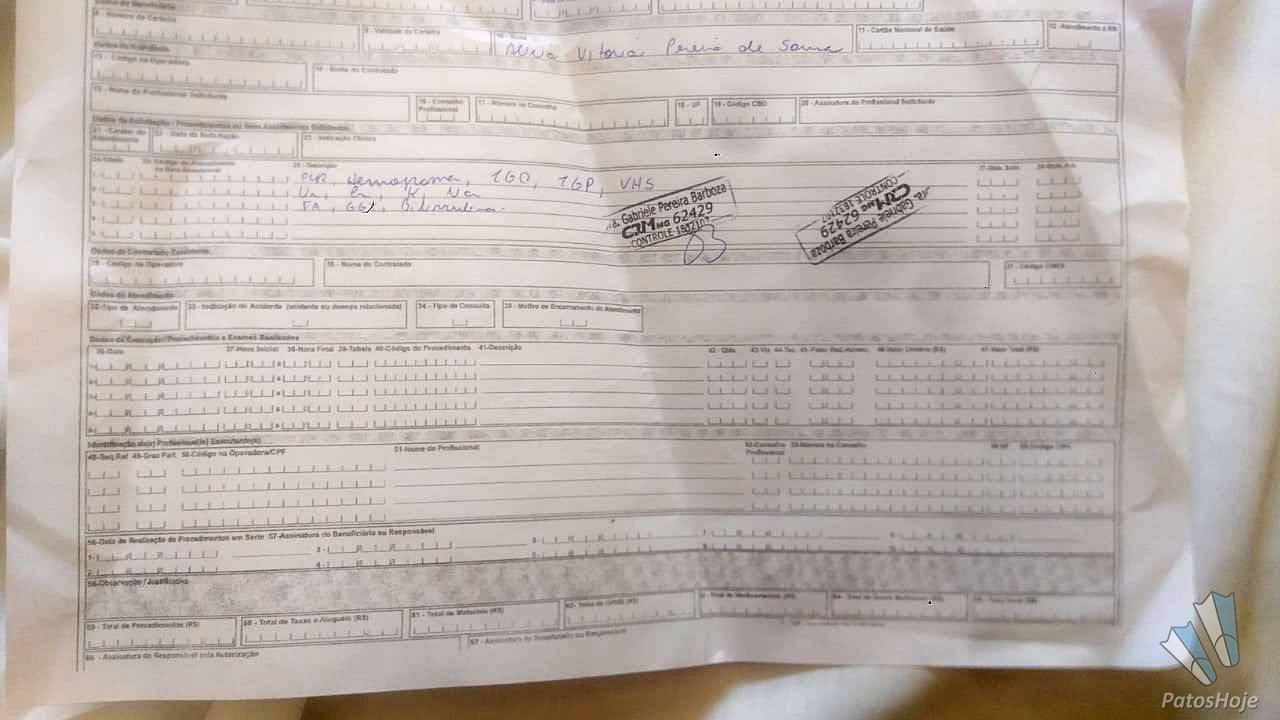 Dados do Beneficiário
8 - Número da Carteira
9 - Validade da Carteira
10 - Nome
Vitoria Pereira de Souza
11 - Cartão Nacional de Saúde
12 - Atendimento a RN
13 - Código na Operadora
14 - Nome do Contratado
15 - Nome do Profissional Solicitante
16 - Conselho Profissional
17 - Número no Conselho
18 - UF
19 - Código CBO
20 - Assinatura do Profissional Solicitante
Dados da Solicitação / Procedimentos ou Itens Assistenciais Solicitados
21 - Caráter do Atendimento
22 - Data da Solicitação
23 - Indicação Clínica
24-Tabela
26 - Descrição
27-Qtde. Solic.
28-Qtde. Aut.
PCR, Hemograma, TGO, TGP, VHS
Ur, Cr, K, Na
FA, GGT, Bilirrubina
Gabriele Pereira Barboza
CRM MG 62429
CONTROLE
03
Gabriele Pereira Barboza
CRM MG 62429
CONTROLE
Dados do Contratado Executante
29 - Código na Operadora
30 - Nome do Contratado
31 - Código CNES
Dados do Atendimento
32-Tipo de Atendimento
33 - Indicação de Acidente (acidente ou doença relacionada)
34 - Tipo de Consulta
35 - Motivo de Encerramento do Atendimento
Dados da Execução / Procedimentos e Exames Realizados
36-Data
37-Hora Inicial
38-Hora Final
39-Tabela
40-Código do Procedimento
41-Descrição
42 - Qtde.
43-Via
44-Tec.
46-Valor Unitário (R$)
47-Valor Total (R$)
Identificação do(s) Profissional(is) Executante(s)
48-Seq.Ref
49-Grau Part.
50-Código na Operadora/CPF
51-Nome do Profissional
52-Conselho Profissional
53-Número no Conselho
54-UF
55-Código CBO
56-Data de Realização de Procedimentos em Série
57-Assinatura do Beneficiário ou Responsável
58-Observação / Justificativa
59 - Total de Procedimentos (R$)
60 - Total de Taxas e Aluguéis (R$)
61 - Total de Materiais (R$)
62 - Total de OPME (R$)
63 - Total de Medicamentos (R$)
66 - Assinatura do Responsável pela Autorização
67 - Assinatura do Beneficiário ou Responsável
PatosHoje